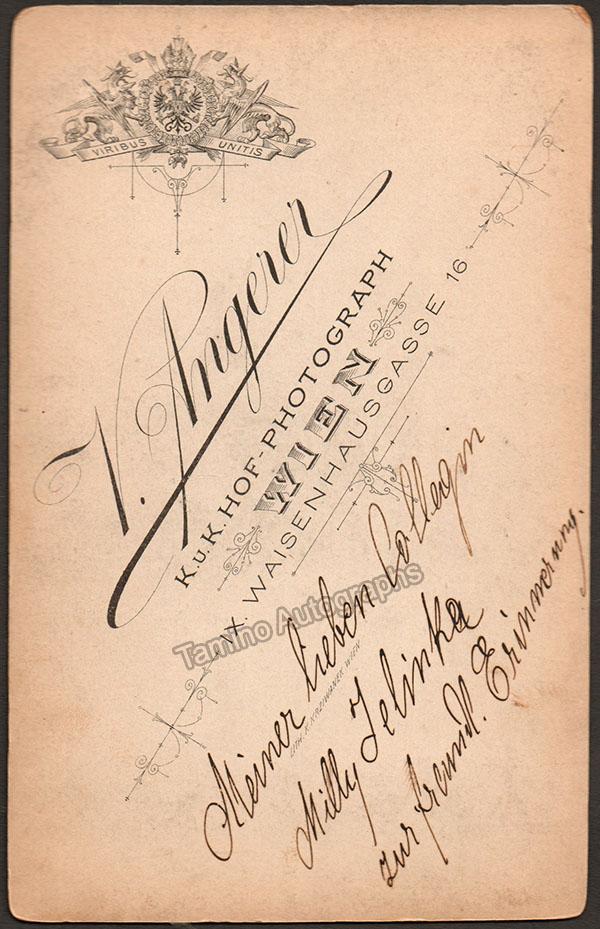 VIRIBUS UNITIS
V. Angerer
K. u. K. HOF-PHOTOGRAPH
WIEN
IX. WAISENHAUSGASSE 16
Tamino Autographs
LITH. K. KRZIWANEK, WIEN
Meiner lieben Collegin
Milly Jelinka
zur freundl. Erinnerung.